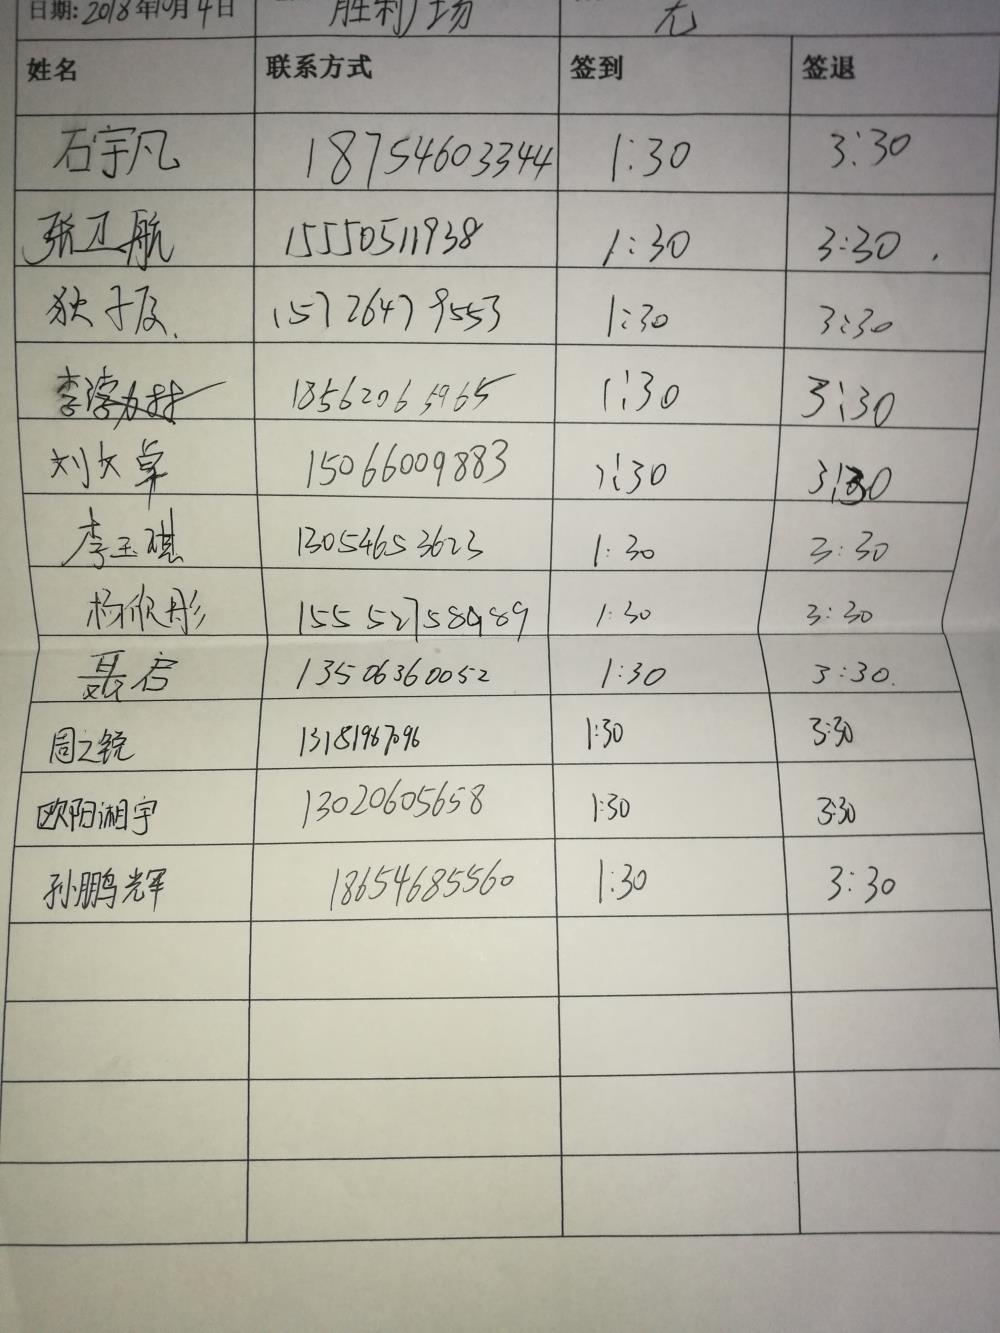 日期: 2018年10月4日 胜利广场 无
姓名 联系方式 签到 签退
石宇凡 18754603344 1:30 3:30
张卫航 15550511938 1:30 3:30
狄子辰 15726479553 1:30 3:30
李 18562065965 1:30 3:30
刘文卓 15066009883 1:30 3:30
李玉琪 13054653623 1:30 3:30
杨欣彤 1:30 3:30
聂启 13506360052 1:30 3:30
周之锐 13181967096 1:30 3:30
欧阳湘宇 13020605658 1:30 3:30
孙鹏辉 18654685560 1:30 3:30